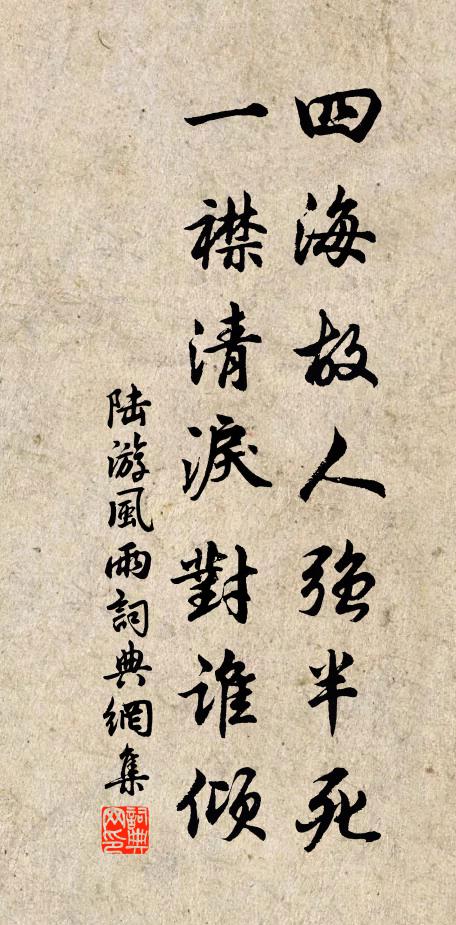 四海故人强半死
一襟清淚對谁傾
陆游風雨詞典網集
詞典网印